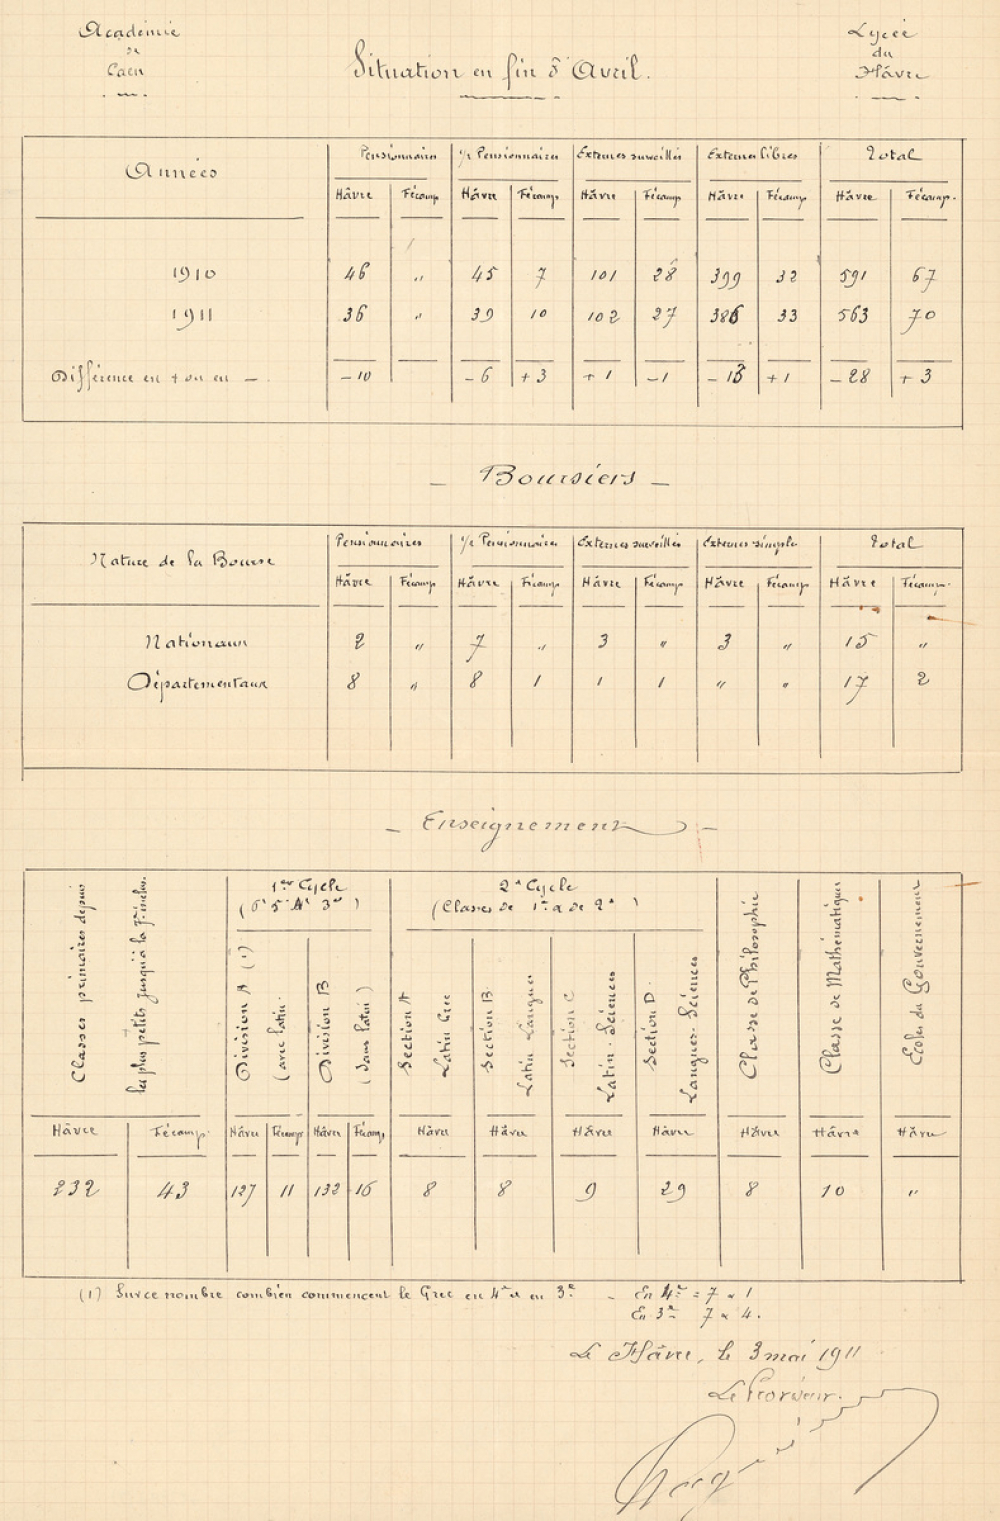 Académie
de
Caen
Lycée
du
Hâvre
Situation en fin d'Avril.
Années
Pensionnaires
½ Pensionnaires
Externes surveillés
Externes libres
Total
Hâvre Fécamp Hâvre Fécamp Hâvre Fécamp Hâvre Fécamp Hâvre Fécamp.
1910 46 " 45 7 101 28 399 32 591 67
1911 36 " 39 10 102 27 386 33 563 70
Différence en + ou en – . – 10 – 6 + 3 + 1 – 1 – 13 + 1 – 28 + 3
– Boursiers –
Nature de la Bourse
Pensionnaires
½ Pensionnaires
Externes surveillés
Externes simple
Total
Hâvre Fécamp Hâvre Fécamp Hâvre Fécamp Hâvre Fécamp Hâvre Fécamp.
Nationaux 2 " 7 " 3 " 3 " 15 "
Départementaux 8 " 8 1 1 1 " " 17 2
– Enseignement –
Classes primaires depuis
les plus petits jusqu'à la 7e inclus.
1er Cycle
(6e 5e 4e 3e)
Division A (1)
(avec latin.
Division B
(sans latin)
2e Cycle
(Classes de 1re & de 2e)
Section A
Latin Grec
Section B.
Latin Langues
Section C
Latin-Sciences
Section D.
Langues-Sciences
Classe de Philosophie
Classe de Mathématiques
Ecoles du Gouvernement
Hâvre Fécamp. Hâvre Fécamp Hâvre Fécamp Hâvre Hâvre Hâvre Hâvre Hâvre Hâvre Hâvre
232 43 127 11 132 16 8 8 9 29 8 10 "
(1) Sur ce nombre combien commencent le Grec en 4e & en 3e. – En 4e = 7 & 1
En 3e = 7 & 4.
Le Hâvre, le 3 mai 1911
Le Proviseur.